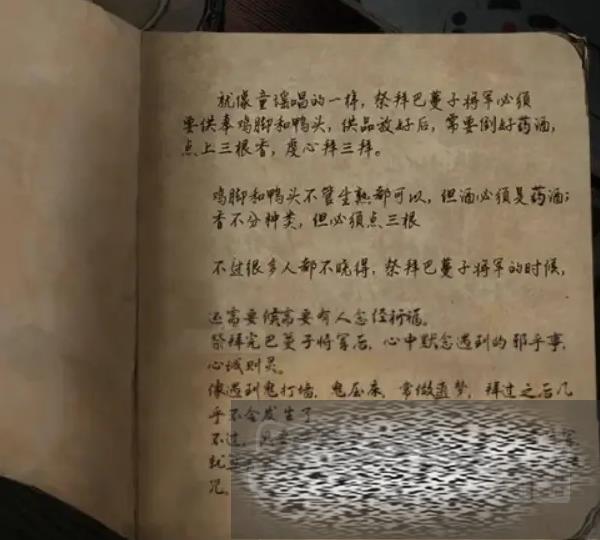 就像童谣唱的一样，祭拜巴蔓子将军必须
要供奉鸡脚和鸭头，供品放好后，需要倒好药酒，
点上三根香，虔心拜三拜。
鸡脚和鸭头不管生熟都可以，但酒必须是药酒；
香不分种类，但必须点三根
不过很多人都不晓得，祭拜巴蔓子将军的时候，
还需要候需要有人念经祈福。
祭拜完巴蔓子将军后，心中默念遇到的邪乎事，
心诚则灵。
像遇到鬼打墙，鬼压床，常做噩梦，拜过之后几
乎不会发生了
不过，
就
咒。